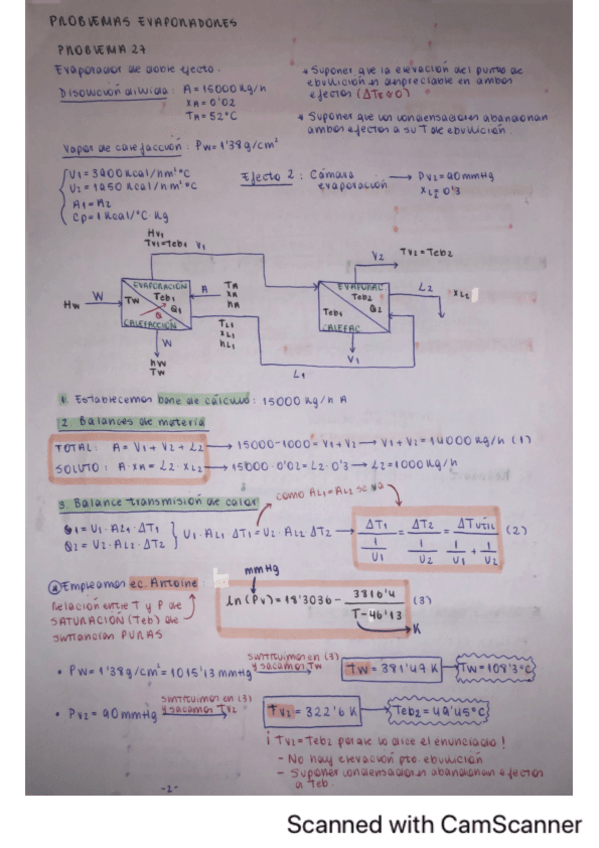 PROBLEMAS EVAPORADORES
PROBLEMA 27
Evaporador de doble efecto.
Disolución diluida: A = 15000 Kg/h
XA = 0'02
TA = 52°C
* Suponer que la elevación del punto de
ebullición es despreciable en ambos
efectos (ΔTe≈0)
* Suponer que los condensadores abandonan
ambos efectos a su T de ebullición.
Vapor de calefacción: Pw = 1'38 g/cm²
U1 = 3900 Kcal/h m² °C
U2 = 1950 Kcal/h m² °C
A1 = A2
Cp = 1 Kcal/°C Kg
Efecto 2: Cámara evaporación → PV2 = 90 mmHg
XL2 = 0'3
HV1
TV1 = Teb1 V1
V2 TV2 = Teb2
EVAPORACIÓN
Teb1
TW
Q1
CALEFACCIÓN
HW W
A
TA
XA
hA
TL1
XL1
hL1
W
hW
TW
EVAPORAC
Teb2
Teb1
Q2
CALEFAC
L2
XL2
V1
L1
1. Establecemos base de cálculo: 15000 Kg/h A
2. Balances de materia
TOTAL: A = V1 + V2 + L2 → 15000-1000 = V1 + V2 → V1 + V2 = 14000 Kg/h (1)
SOLUTO: A·XA = L2·XL2 → 15000·0'02 = L2·0'3 → L2 = 1000 Kg/h
3. Balance transmisión de calor
como AL1 = AL2 se va
Q1 = U1·AL1·ΔT1
Q2 = U2·AL2·ΔT2
U1·AL1 ΔT1 = U2·AL2·ΔT2 → ΔT1 / (1/U1) = ΔT2 / (1/U2) = ΔTÚTIL / (1/U1 + 1/U2) (2)
a) Empleamos ec. Antoine
Relación entre T y P de
SATURACIÓN (Teb) de
sustancias PURAS
mmHg
ln(Pv) = 18'3036 - 3816'4 / (T-46'13) (3)
K
• PW = 1'38 g/cm² = 1015'13 mmHg sustituimos en (3) y sacamos TW TW = 381'47 K → TW = 108'3°C
• PV2 = 90 mmHg sustituimos en (3) y sacamos TV2 TV2 = 322'6 K → Teb2 = 49'45°C
¡TV2 = Teb2 porque lo dice el enunciado!
- No hay elevación pto. ebullición
- Suponer condensadores abandonan efectos
a Teb.
-2-
Scanned with CamScanner